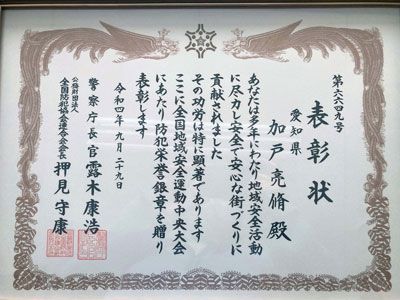 第六六四九号
表彰状
愛知県
加戸亮脩殿
あなたは多年にわたり地域安全活動
に尽力し安全で安心な街づくりに
貢献されました
その功労は特に顕著であります
ここに全国地域安全運動中央大会
にあたり防犯栄誉銀章を贈り
表彰します
令和四年九月二十九日
警察庁長官露木康浩
公益財団法人
全国防犯協会連合会会長押見守康